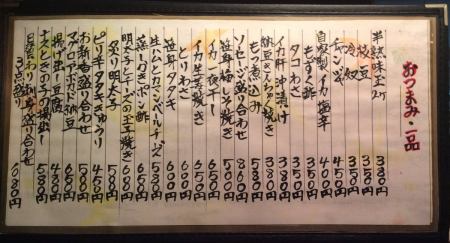 おつまみ・一品
半熟味玉 380円
枝豆 350円
冷奴 350円
チャンジャ 450円
自家製イカ塩辛 400円
もずく酢 350円
タコわさ 350円
イカ肝沖漬け 380円
納豆きんちゃく焼き 380円
もつ煮込み 580円
ソーセージ盛り合わせ 860円
笹茸梅しそ焼き 500円
イカ一夜干し 650円
イカ生姜焼き 650円
とりわさ 600円
笹茸タタキ 600円
生ハムとカマンベールチーズ 580円
蒸し鶏ポン酢 650円
明太子とチーズの玉子焼き 600円
炙り明太子 580円
ピリ辛タタキきゅうり 450円
お新香盛り合わせ 580円
マグロユッケ納豆 680円
揚げ出し豆腐 480円
ナスときのこの揚煮 580円
日替わり刺身盛り合わせ 3点盛り 1080円